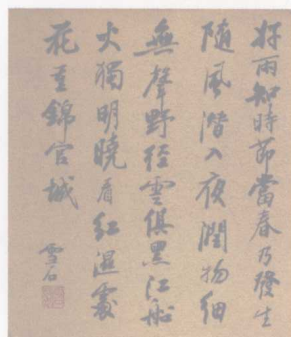 好雨知時節當春乃發生
随風潛入夜潤物細
無聲野徑雲俱黑江船
火獨明曉看紅濕處
花重錦官城
雪石